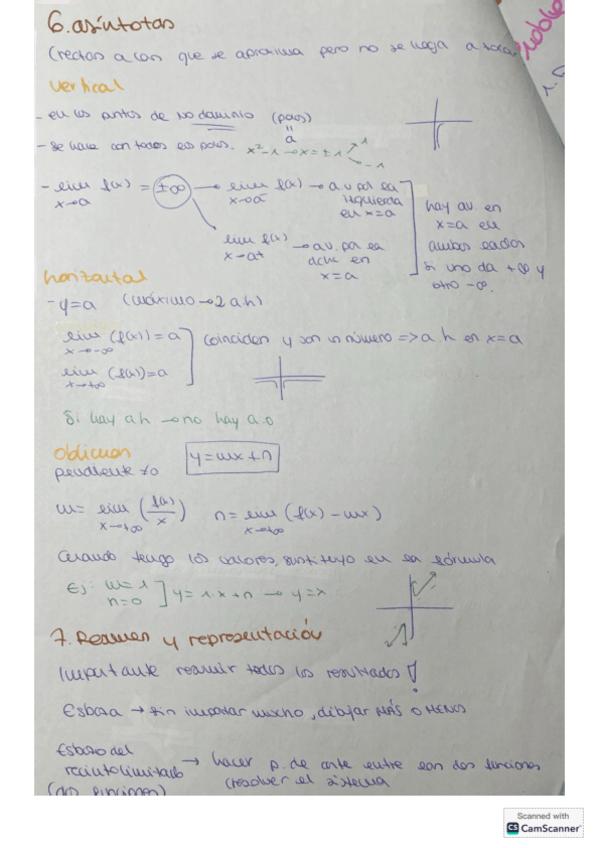 6. asíntotas
(rectas a las que se aproxima pero no se llega a tocar
vertical
- en los puntos de NO dominio (polos)
- se hace con todos los polos. x²-1 → x=±1 1
-1
"
a
- lim f(x) = ±∞ → lim f(x) → av por la
x→a x→a⁻ izquierda
en x=a
lim f(x) → av. por la
x→a+ dcha en
x=a
hay av en
x=a en
ambos lados
si uno da +∞ y
otro -∞.
horizontal
- y=a (máximo → 2 ah)
lim (f(x)) = a
x→-∞
lim (f(x)) = a
x→+∞
coinciden y son un número => a h en x=a
Si hay ah → no hay a.o
oblicuas
pendiente ≠0
y=mx+n
m= lim (f(x)/x) n= lim (f(x) - mx)
x→+∞ x→+∞
Cuando tengo los valores, sustituyo en la fórmula
Ej: m=1
n=0 ] y=1·x+n → y=x
7. Resumen y representación
Importante resumir todos los resultados!
Esbozo → sin importar mucho, dibujar MÁS O MENOS
Esbozo del
recinto limitado → hacer p. de corte entre las dos funciones
(dos funciones) (resolver el sistema
Scanned with
CS CamScanner